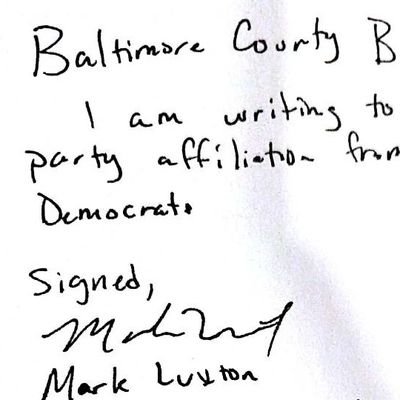 Baltimore County B
I am writing to
party affiliation from
Democrat.
Signed,
Mark Luxton